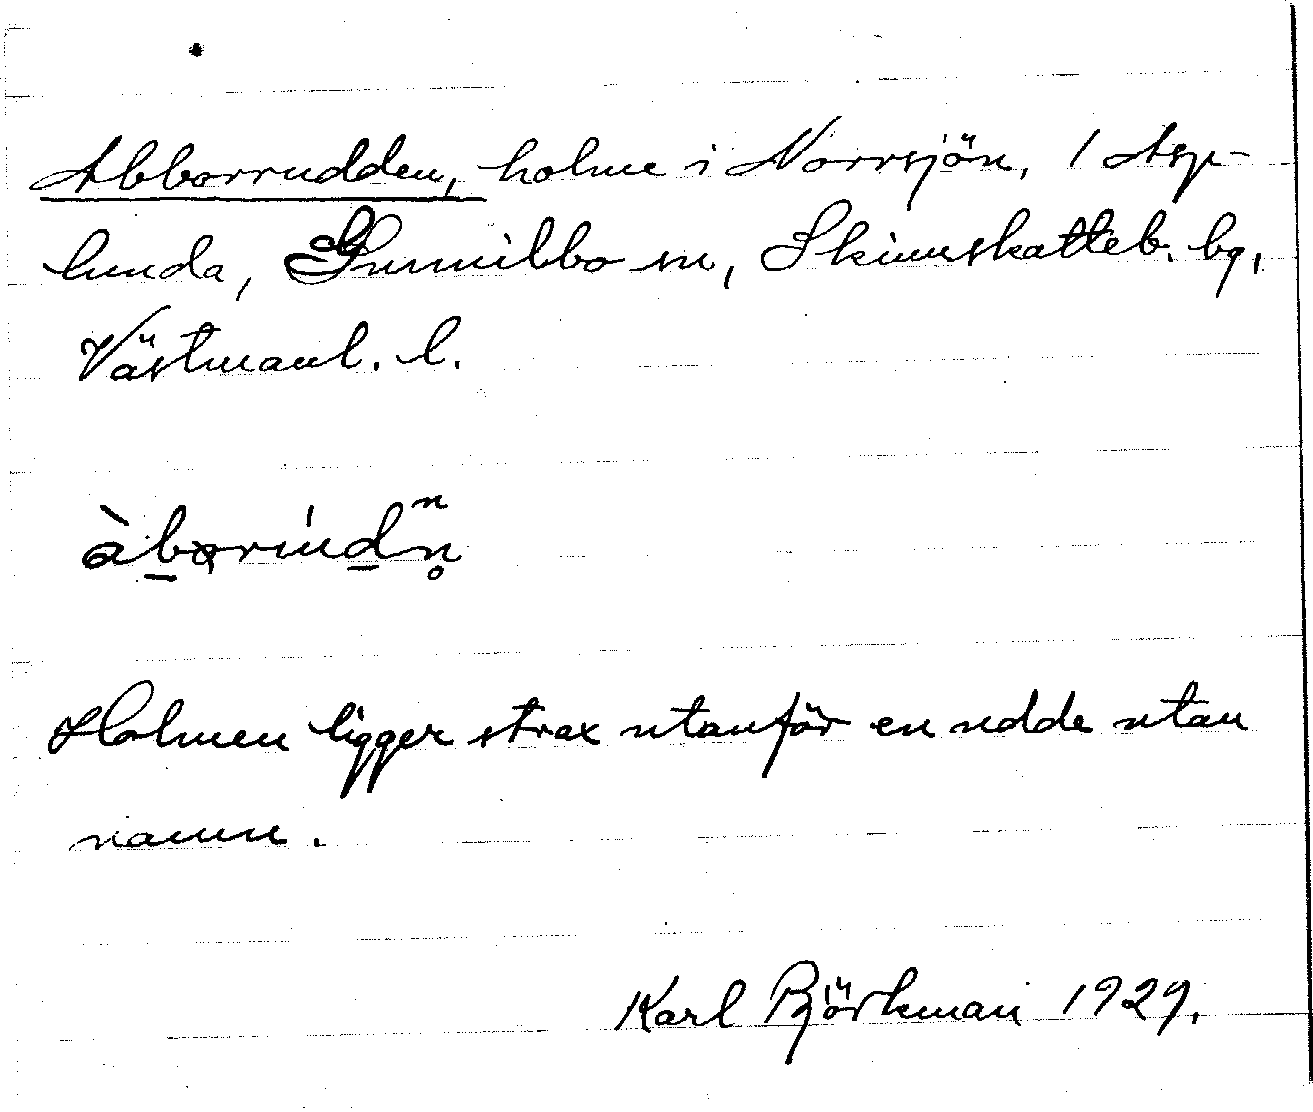 Abborrudden, holme i Norrsjön, 1 Asp-
lunda, Gunnilbo sn, Skinnskatteb. bg,
Västmanl. l.
Holmen ligger strax utanför en udde utan
namn.
Karl Björkman 1929.